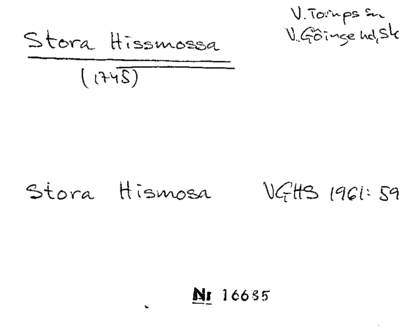 V. Torups sn
V. Göinge hd, Sk
Stora Hissmossa
(1745)
Stora Hismosa VGHS 1961: 59
Nr 16635